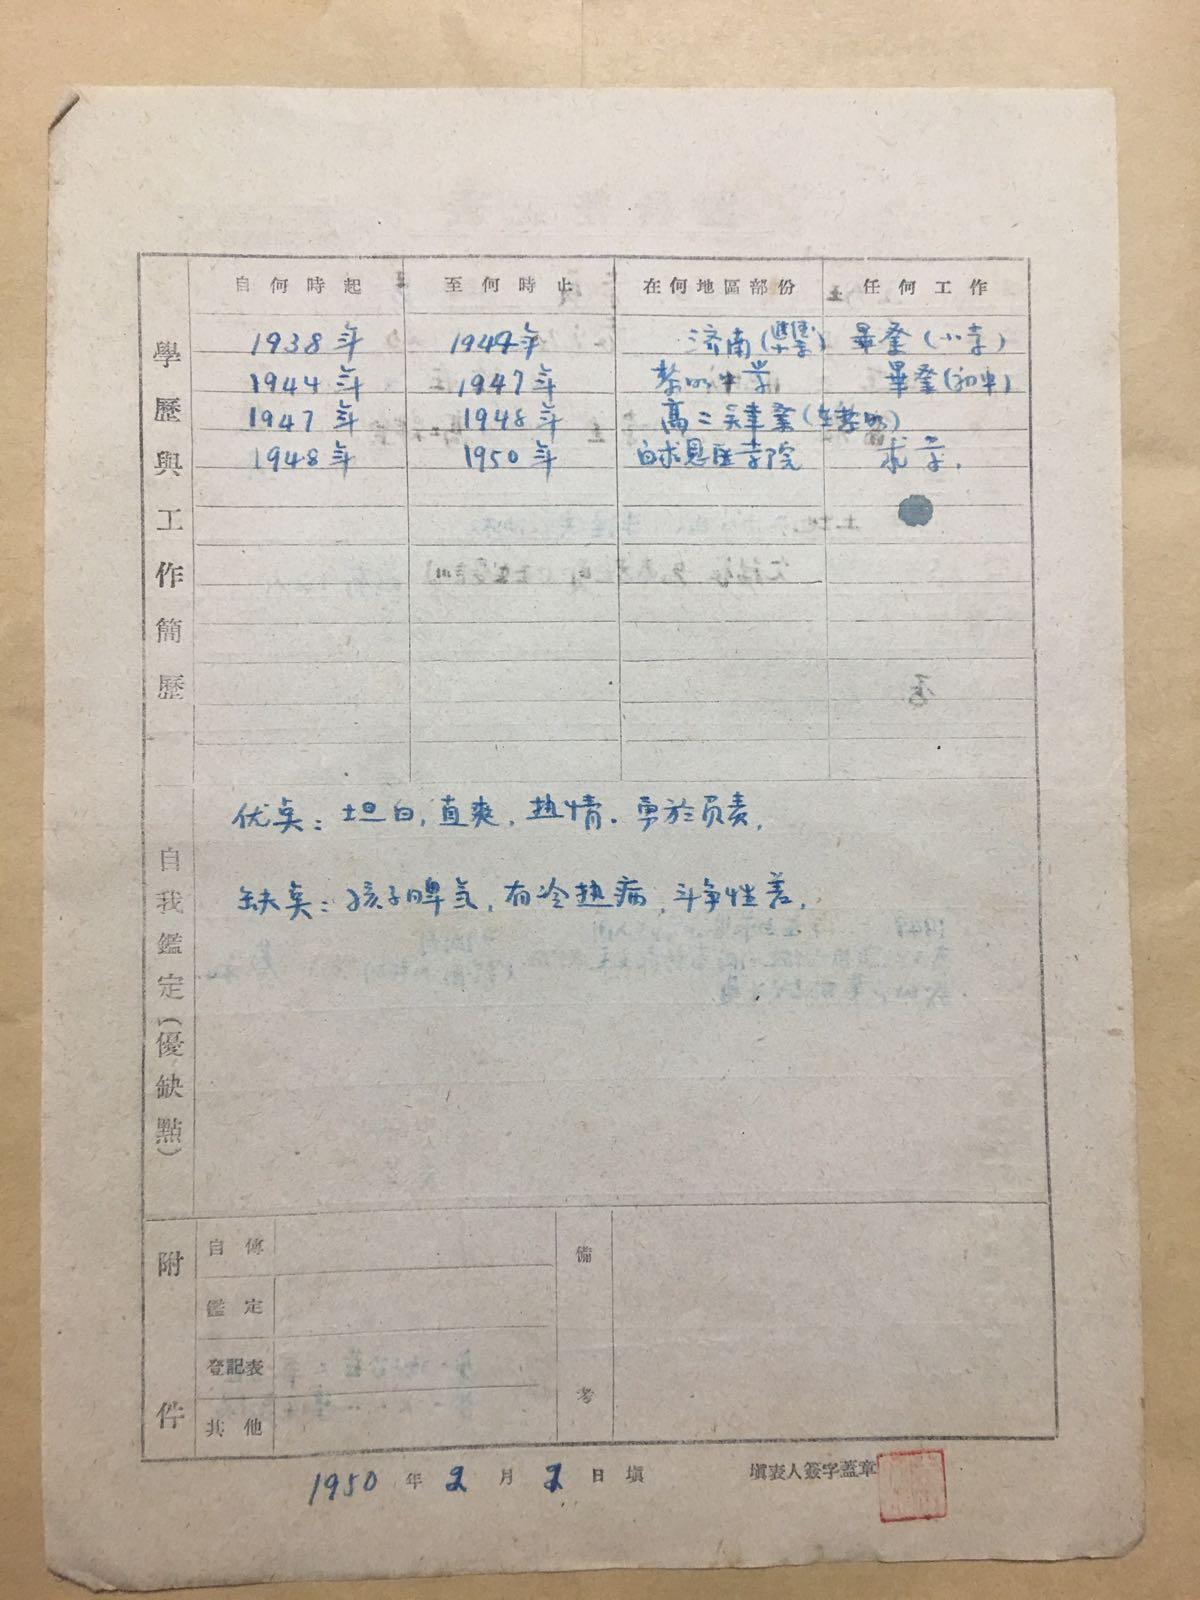 自何時起 至何時止 在何地區部份 任何工作
學歷與工作簡歷
1938年 1944年 济南 畢業(小学)
1944年 1947年 黎明中学 畢業(初中)
1947年 1948年 高二肄業(在黎明)
1948年 1950年 白求恩医学院 求学.
自我鑑定(優缺點)
优奌:坦白,直爽,热情.勇於负责,
缺奌:孩子脾气,有冷热病,斗争性差,
附件
自傳
鑑定
登記表
其他
備考
1950年2月2日填 填表人簽字蓋章